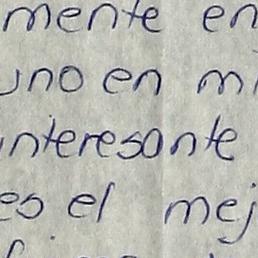 mente en
uno en mi
interesante
es el mej